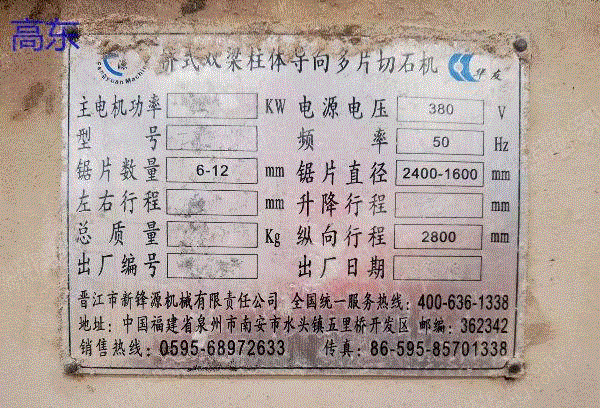 高东
源
Fengyuan Machine
桥式双梁柱体导向多片切石机
华友
主电机功率 KW 电源电压 380 V
型号 频率 50 Hz
锯片数量 6-12 mm 锯片直径 2400-1600 mm
左右行程 mm 升降行程 mm
总质量 Kg 纵向行程 2800 mm
出厂编号 出厂日期
晋江市新锋源机械有限责任公司 全国统一服务热线：400-636-1338
地址：中国福建省泉州市南安市水头镇五里桥开发区 邮编：362342
销售热线：0595-68972633 传真：86-595-85701338